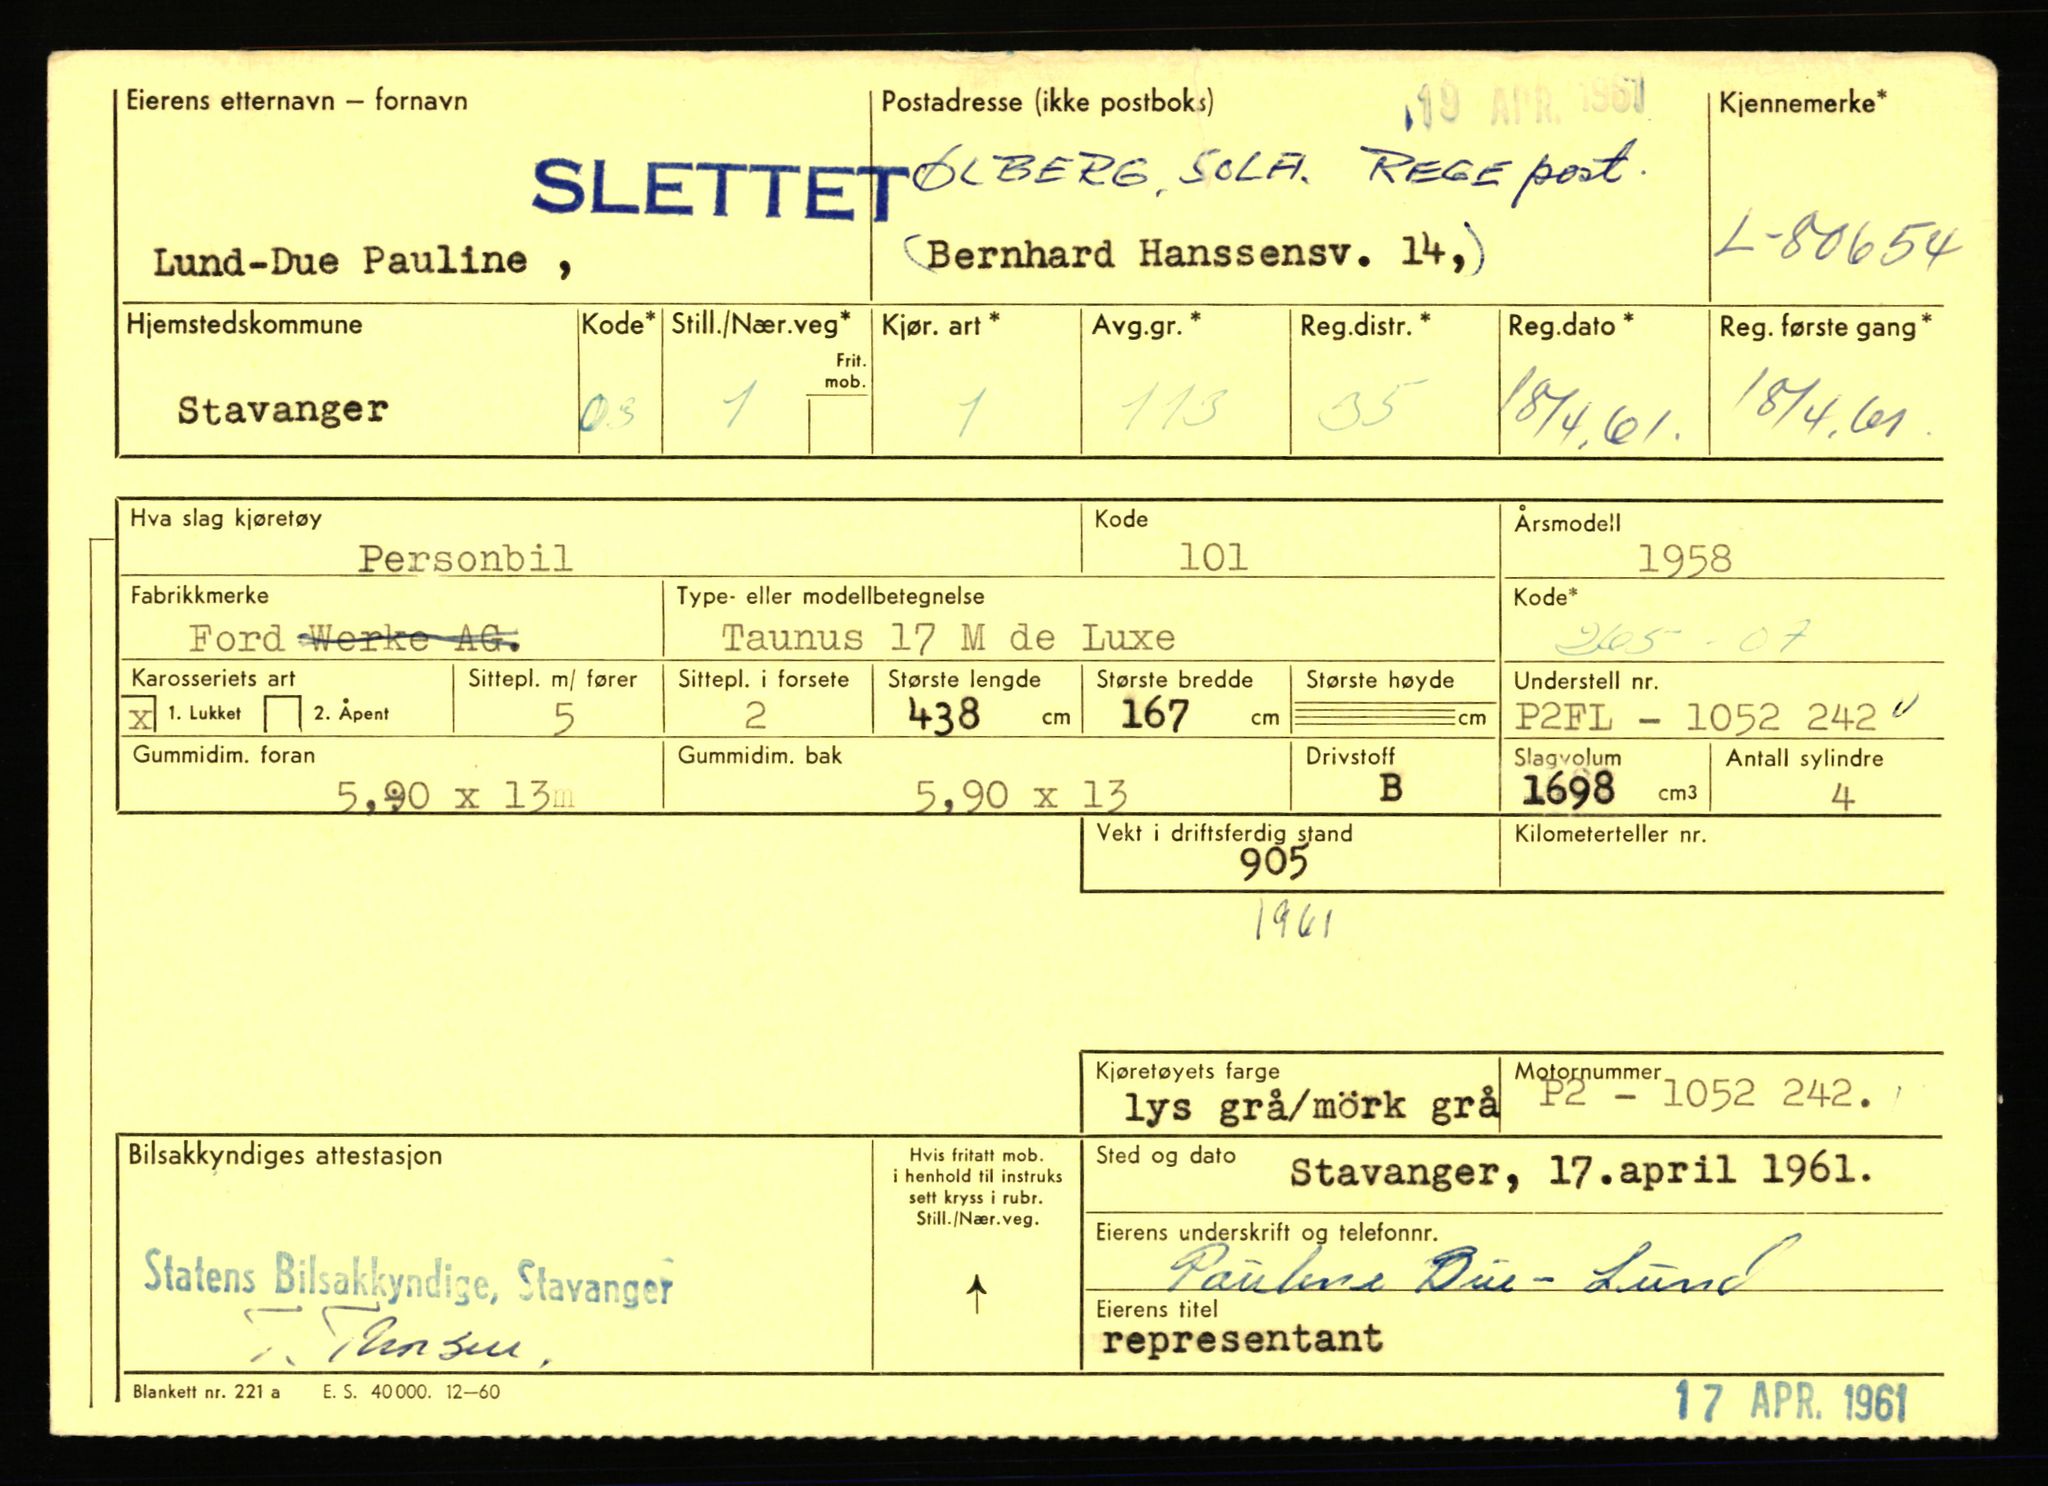 Eierens etternavn – fornavn
Postadresse (ikke postboks)
19 APR. 1961
Kjennemerke*
SLETTET
ØLBERG, SOLA. REGE post.
Lund-Due Pauline ,
(Bernhard Hanssensv. 14,)
L-80654
Hjemstedskommune
Kode*
Still./Nær.veg*
Frit. mob.
Kjør. art *
Avg.gr. *
Reg.distr. *
Reg.dato *
Reg. første gang *
Stavanger
03
1
1
113
35
18/4.61.
18/4.61.
Hva slag kjøretøy
Personbil
Kode
101
Årsmodell
1958
Fabrikkmerke
Ford Werke AG.
Type- eller modellbetegnelse
Taunus 17 M de Luxe
Kode*
265 - 07
Karosseriets art
x 1. Lukket 2. Åpent
Sittepl. m/ fører
5
Sittepl. i forsete
2
Største lengde
438 cm
Største bredde
167 cm
Største høyde
cm
Understell nr.
P2FL - 1052 242
Gummidim. foran
5,90 x 13m
Gummidim. bak
5,90 x 13
Drivstoff
B
Slagvolum
1698 cm3
Antall sylindre
4
Vekt i driftsferdig stand
905
Kilometerteller nr.
1961
Kjøretøyets farge
lys grå/mörk grå
Motornummer
P2 - 1052 242.
Bilsakkyndiges attestasjon
Hvis fritatt mob.
i henhold til instruks
sett kryss i rubr.
Still./Nær.veg.
Sted og dato
Stavanger, 17.april 1961.
Eierens underskrift og telefonnr.
Pauline Due-Lund
Statens Bilsakkyndige, Stavanger
T. Thorsen.
Eierens titel
representant
Blankett nr. 221 a E. S. 40 000. 12—60
17 APR. 1961